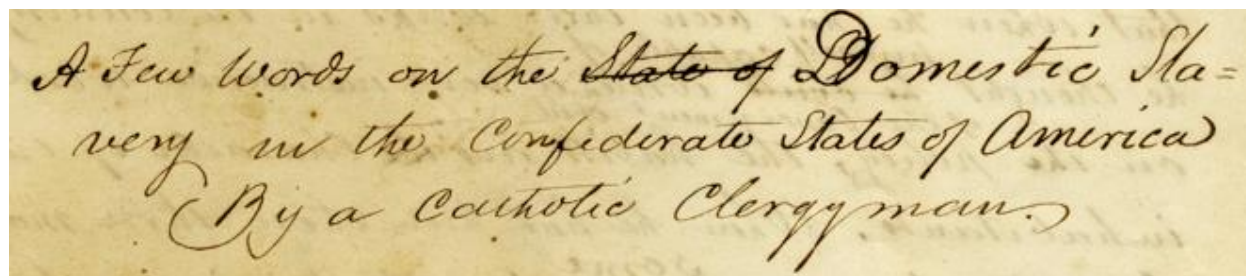 A Few Words on the State of Domestic Sla=
very in the Confederate States of America
By a Catholic Clergyman.